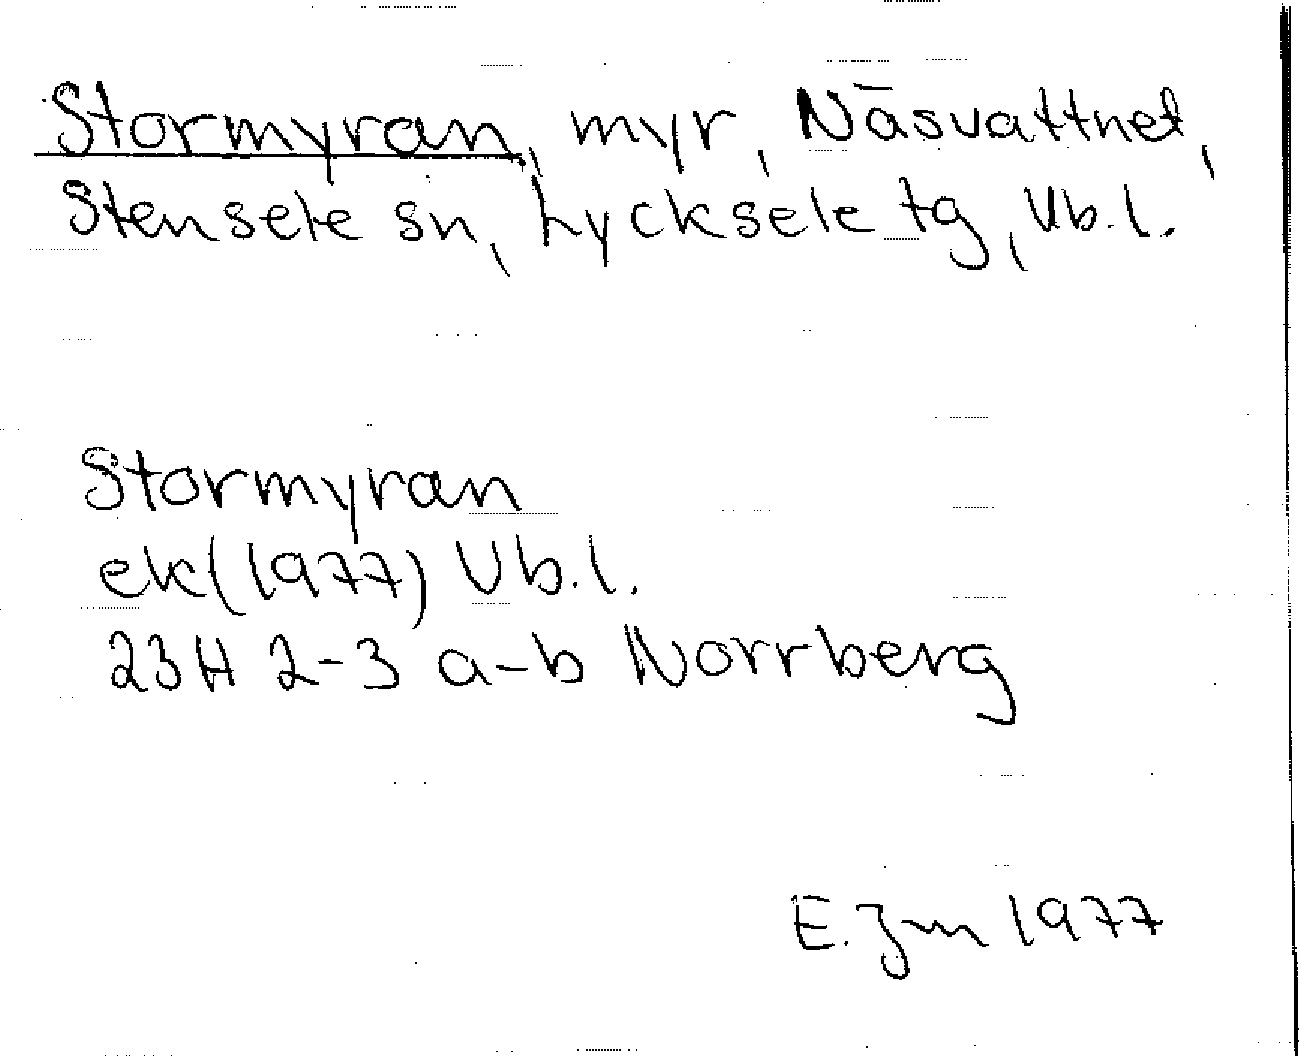 Stormyran, myr, Näsvattnet,
Stensele sn, Lycksele tg, Vb.l.
Stormyran
ek(1977) Vb.l.
23H 2-3 a-b Norrberg
E. Jm 1977